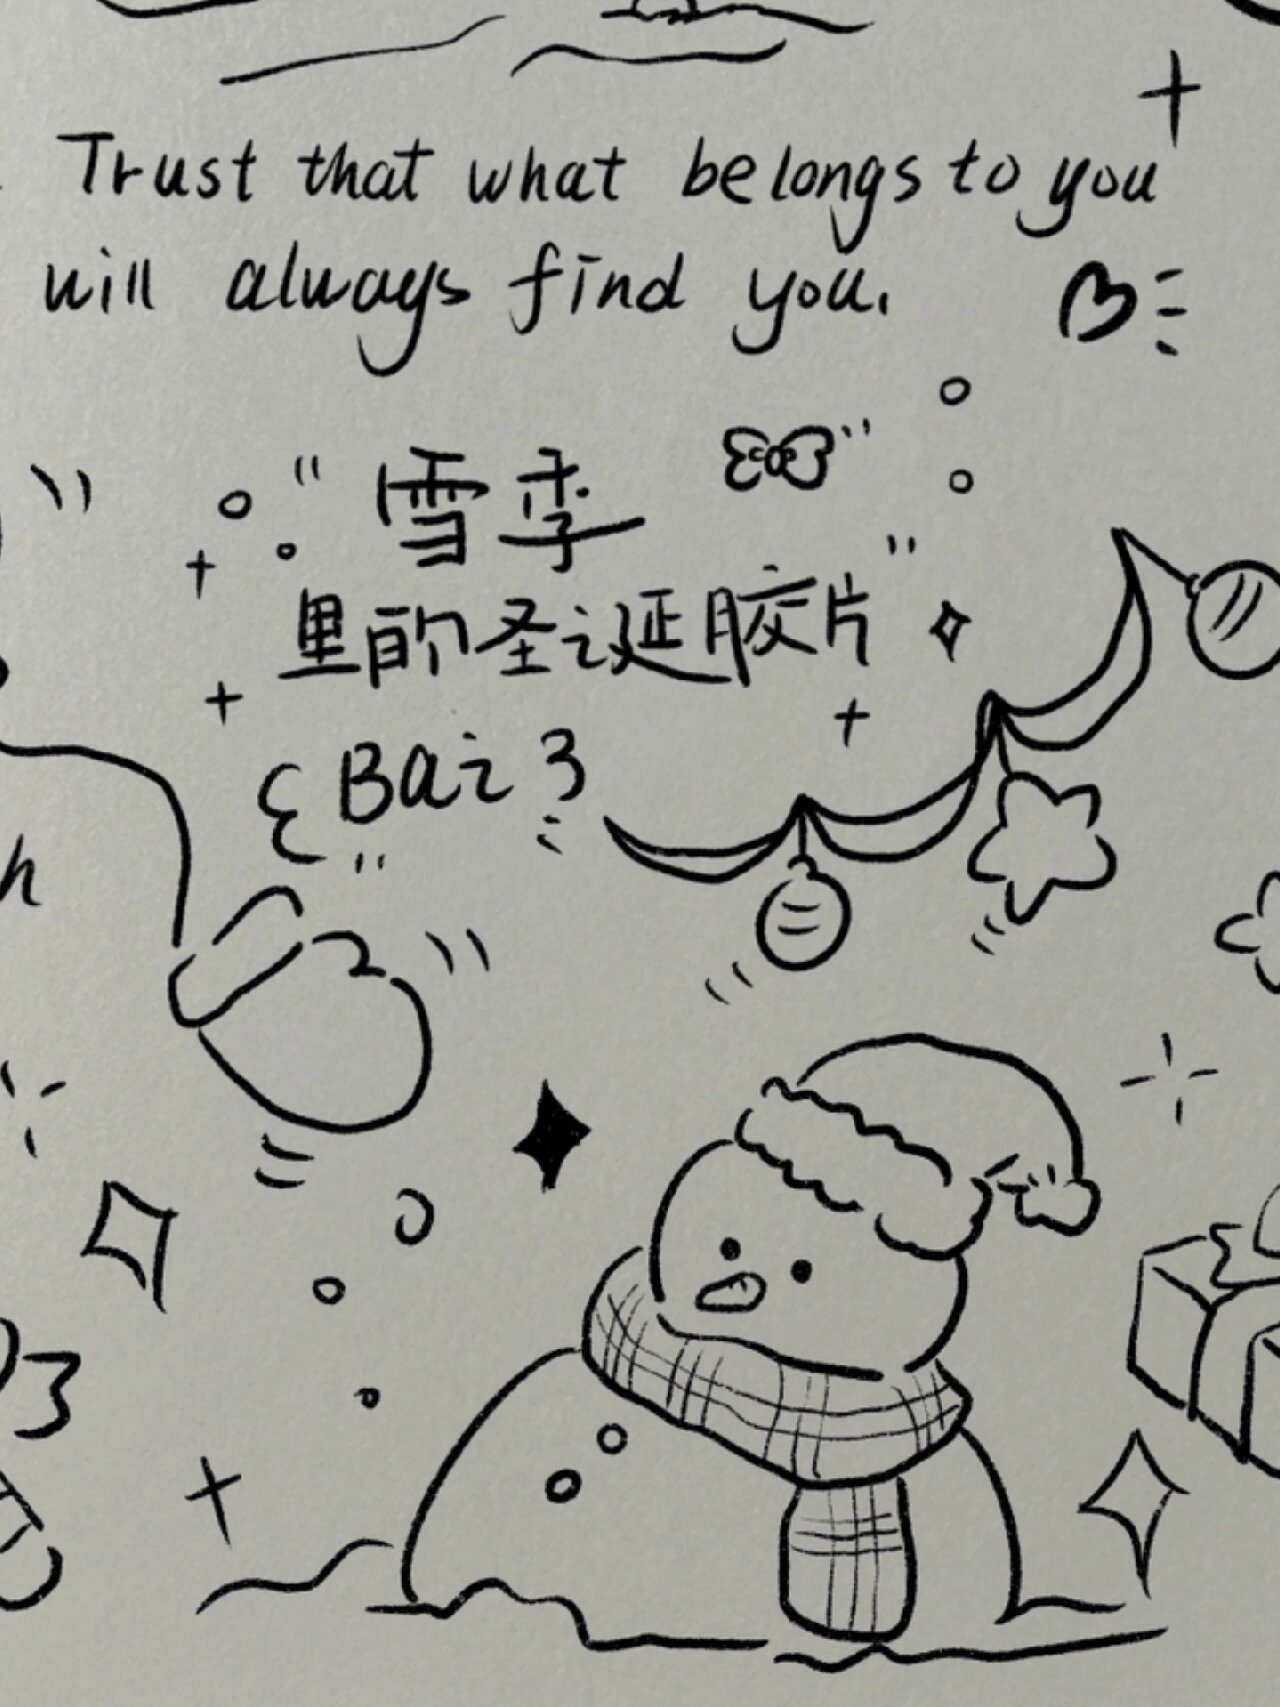 Trust that what belongs to you
will always find you.
"雪季
里的圣诞胶片"
Bai